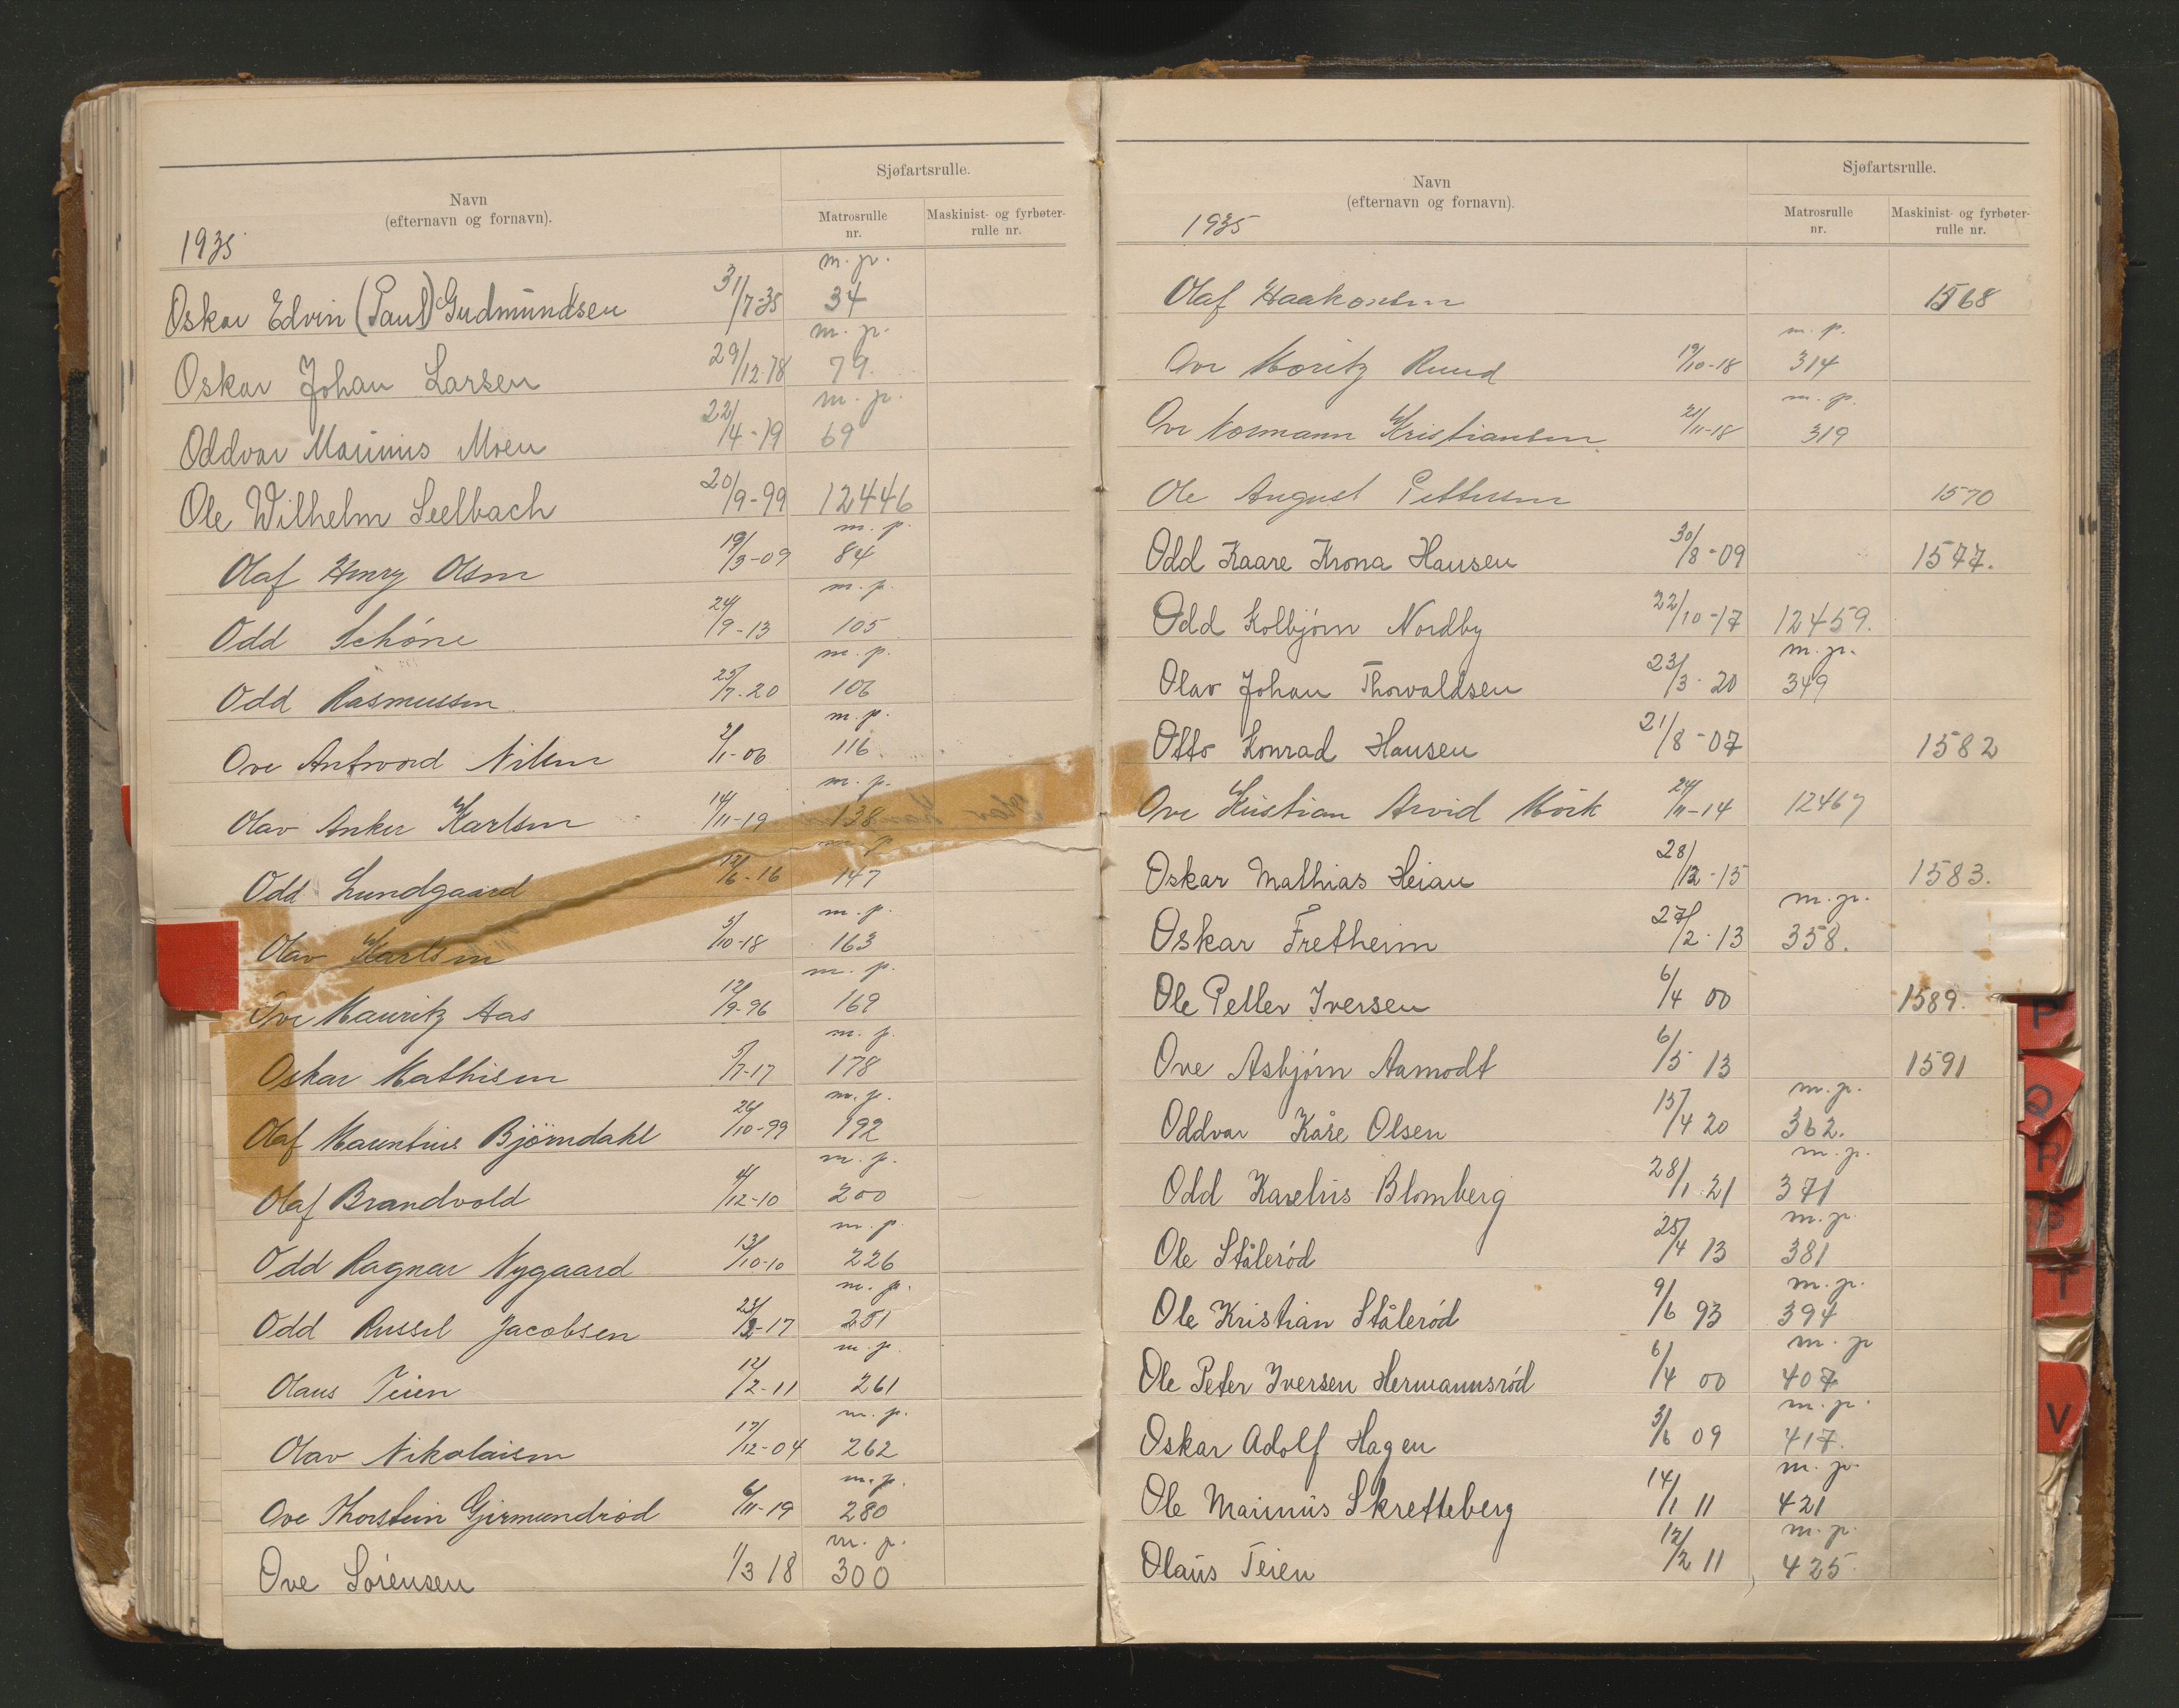 Navn
(efternavn og fornavn).
Sjøfartsrulle.
Matrosrulle nr.
Maskinist- og fyrbøter-rulle nr.
1935
m. p.
Oskar Edvin (Paul) Gudmundsen 31/7-35 34
m. p.
Oskar Johan Larsen 29/12-78 79.
m. p.
Oddvar Marinius Moen 22/4-19 69
Ole Wilhelm Seelbach 20/9-99 12446
m. p.
Olaf Henry Olsen 19/3-09 84
m. p.
Odd Schöne 24/9-13 105
m. p.
Odd Rasmussen 25/7-20 106
m. p.
Ove Antword Nilsen 2/1-06 116
m. p.
Olav Anker Karlsen 14/11-19 138
m. p.
Odd Lundgaard 12/6-16 147
m. p.
Olav Karlsen 5/10-18 163
m. p.
Ove Mauritz Aas 12/9-96 169
m. p.
Oskar Mathisen 5/7-17 178
m. p.
Olaf Björndahl 26/10-99 192
m. p.
Olaf Brandvold 4/12-10 200
m. p.
Odd Ragnar Nygaard 13/10-10 226
m. p.
Odd Russel Jacobsen 23/2-17 251
m. p.
Olaus Teien 12/2-11 261
m. p.
Olav Nikolaisen 17/12-04 262
m. p.
Ove Thorstein Girmundrød 6/11-19 280
m. p.
Ove Sörensen 1/3 18 300
Navn
(efternavn og fornavn).
Sjøfartsrulle.
Matrosrulle nr.
Maskinist- og fyrbøter-rulle nr.
1935
Olaf Haakonsen 1568
m. p.
Ove Moritz Ruud 19/10-18 314
m. p.
Ove Normann Kristiansen 21/11-18 319
Ole August Pettersen 1570
Odd Kaare Krona Hansen 30/8-09 1577.
Odd Kolbjörn Nordby 22/10-17 12459.
m. p.
Olav Johan Thorvaldsen 23/3-20 349
Otto Konrad Hansen 21/8-07 1582
Ove Kristian Arvid Mörk 24/11-14 12467
Oskar Mathias Heian 28/12-15 1583.
m. p.
Oskar Fretheim 27/2-13 358.
Ole Petter Iversen 6/4 00 1589.
Ove Asbjörn Aamodt 6/5 13 1591
m. p.
Oddvar Kåre Olsen 15/4 20 362.
m. p.
Odd Karelius Blomberg 28/1 21 371
m. p.
Ole Stålerød 25/4 13 381
m. p.
Ole Kristian Stålerød 9/6 93 394
m. p
Ole Peter Iversen Hermannsrød 6/4 00 407
m. p.
Oskar Adolf Hagen 3/6 09 417.
m. p.
Ole Marinius Skretteberg 14/1 11 421
m. p.
Olaus Teien 12/2 11 425
P
Q
R
T
V